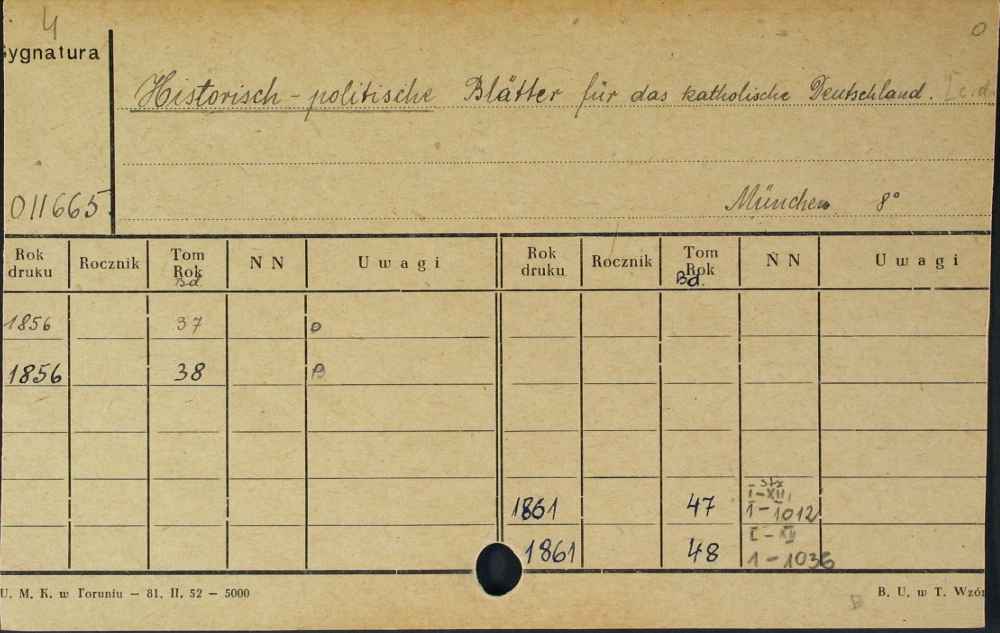 4
0
Sygnatura
Historisch-politische Blätter für das katholische Deutschland. [c.d.
011665
München 8°
Rok druku Rocznik Tom Rok Bd. NN Uwagi Rok druku Rocznik Tom Rok Bd. NN Uwagi
1856 37 o
1856 38 B
1861 47 str I-XII, 1-1012
1861 48 I-XII 1-1036
U. M. K. w Toruniu – 81. II. 52 – 5000
B. U. w T. Wzór